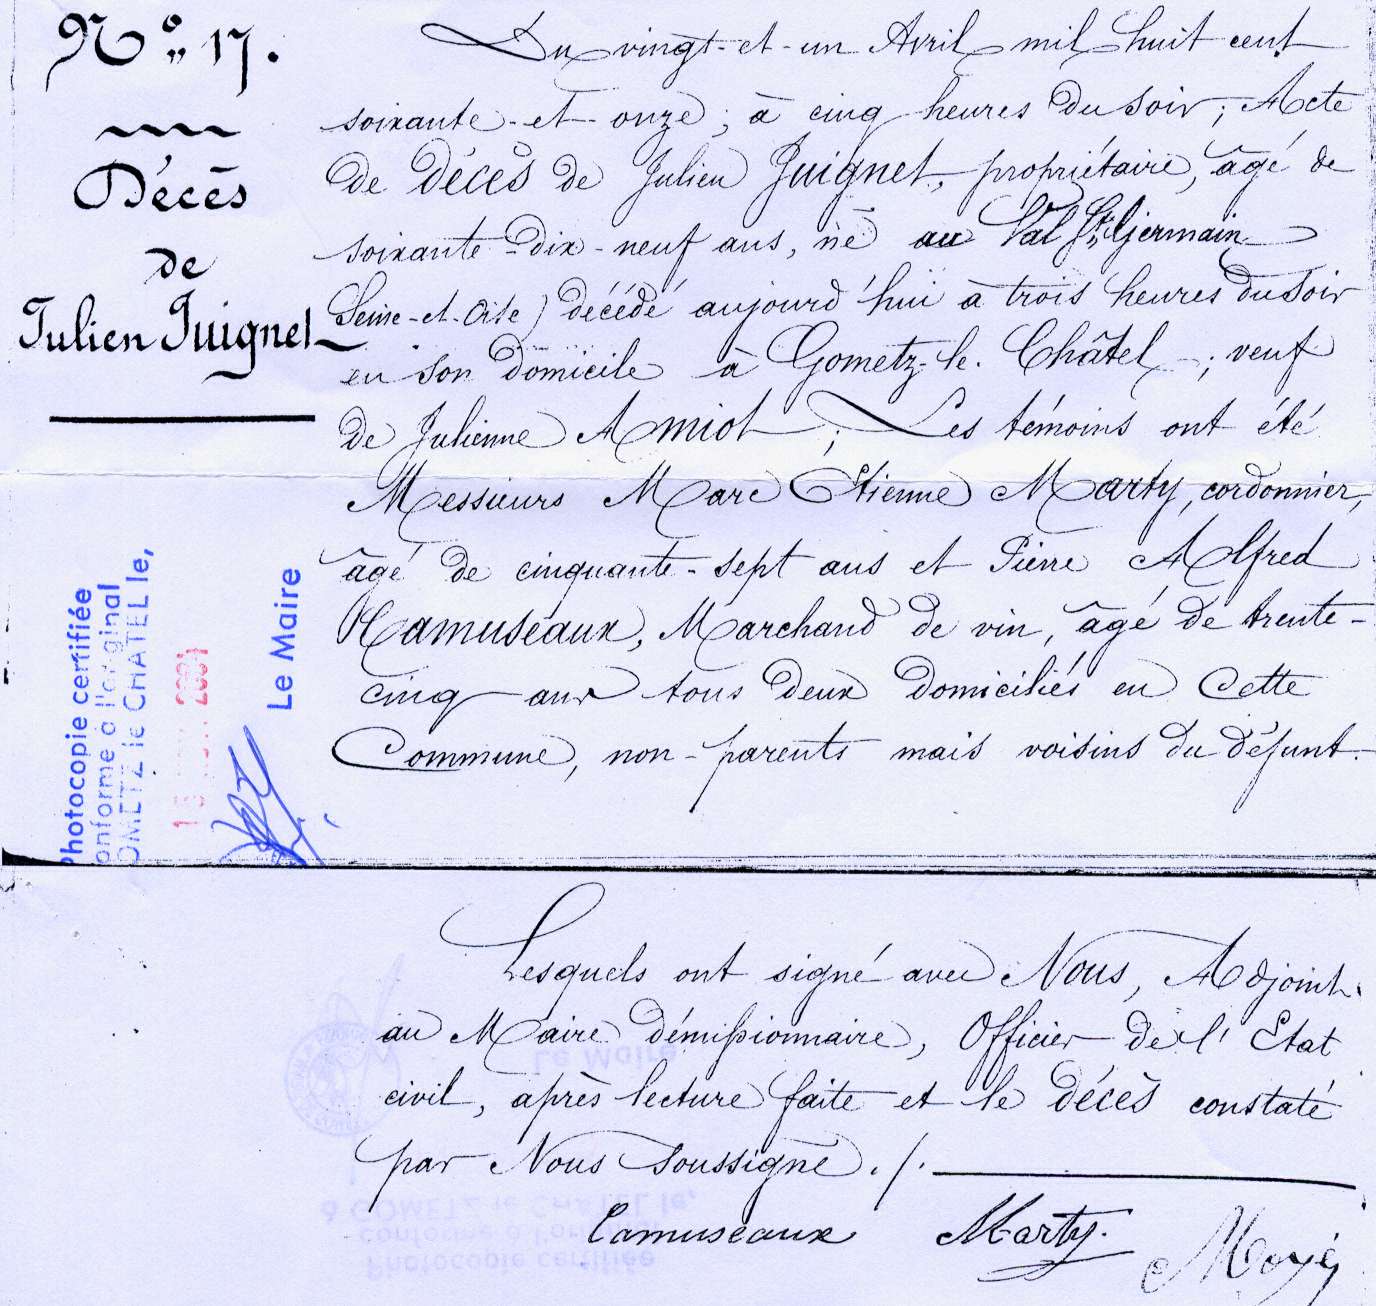 N° 17.
Décès
de
Julien Juignet
Du vingt-et-un Avril mil huit cent
soixante-et-onze ; à cinq heures du soir ; Acte
de décès de Julien Juignet, propriétaire, âgé de
soixante-dix-neuf ans, né au Val St Germain
Seine-et-Oise) décédé aujourd'hui à trois heures du soir
en son domicile à Gometz-le-Châtel ; veuf
de Julienne Amiot ; Les témoins ont été
Messieurs Marc Etienne Marty, cordonnier,
âgé de cinquante-sept ans et Pierre Alfred
Camuseaux, Marchand de vin, âgé de trente-
cinq ans tous deux domiciliés en cette
Commune, non-parents mais voisins du défunt.
Photocopie certifiée
onforme à l'original
OMETZ le CHATEL le,
Le Maire
Lesquels ont signé avec Nous, Adjoint
au Maire démissionnaire, Officier de l'Etat
civil, après lecture faite et le décès constaté
par Nous soussigné ./.
Le Maire
à GOMETZ le CHATEL le,
conforme à l'original
Photocopie certifiée
Camuseaux Marty.